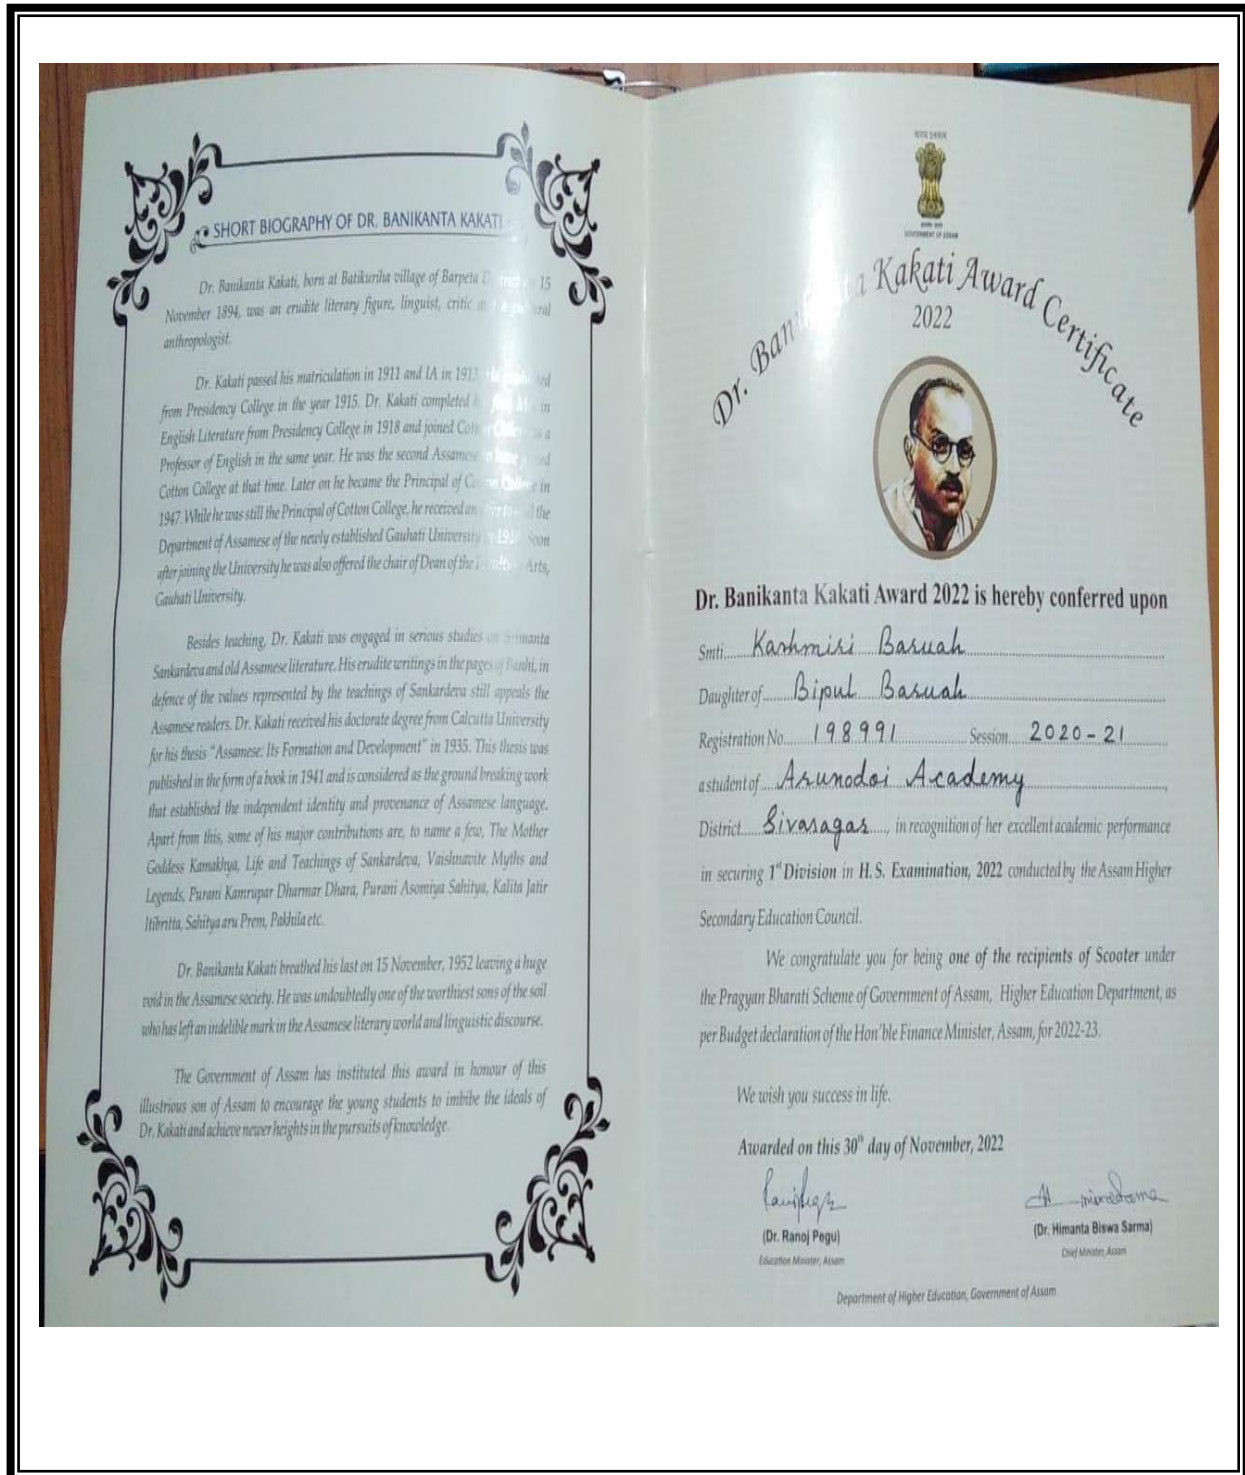 SHORT BIOGRAPHY OF DR. BANIKANTA KAKATI
Dr. Banikanta Kakati, born at Batikuriha village of Barpeta 15
November 1894, was an erudite literary figure, linguist, critic
anthropologist.
Dr. Kakati passed his matriculation in 1911 and IA in 1913.
from Presidency College in the year 1915. Dr. Kakati completed in
English Literature from Presidency College in 1918 and joined a
Professor of English in the same year. He was the second Assamese
Cotton College at that time. Later on he became the Principal of College in
1947. While he was still the Principal of Cotton College, he received an the
Department of Assamese of the newly established Gauhati University Soon
after joining the University he was also offered the chair of Dean of the Arts,
Gauhati University.
Besides teaching, Dr. Kakati was engaged in serious studies on
Sankardeva and old Assamese literature. His erudite writings in the pages of Banhi, in
defence of the values represented by the teachings of Sankardeva still appeals the
Assamese readers. Dr. Kakati received his doctorate degree from Calcutta University
for his thesis "Assamese: Its Formation and Development" in 1935. This thesis was
published in the form of a book in 1941 and is considered as the ground breaking work
that established the independent identity and provenance of Assamese language.
Apart from this, some of his major contributions are, to name a few, The Mother
Goddess Kamakhya, Life and Teachings of Sankardeva, Vaishnavite Myths and
Legends, Purani Kamrupar Dharmar Dhara, Purani Asomiya Sahitya, Kalita Jatir
Itibritta, Sahitya aru Prem, Pakhila etc.
Dr. Banikanta Kakati breathed his last on 15 November, 1952 leaving a huge
void in the Assamese society. He was undoubtedly one of the worthiest sons of the soil
who has left an indelible mark in the Assamese literary world and linguistic discourse.
The Government of Assam has instituted this award in honour of this
illustrious son of Assam to encourage the young students to imbibe the ideals of
Dr. Kakati and achieve newer heights in the pursuits of knowledge.
GOVERNMENT OF ASSAM
Dr. Kakati Award Certificate
2022
Dr. Banikanta Kakati Award 2022 is hereby conferred upon
Smti Kashmiri Baruah
Daughter of Bipul Baruah
Registration No 198991 Session 2020-21
a student of Arunodoi Academy
District Sivasagar, in recognition of her excellent academic performance
in securing 1st Division in H. S. Examination, 2022 conducted by the Assam Higher
Secondary Education Council.
We congratulate you for being one of the recipients of Scooter under
the Pragyan Bharati Scheme of Government of Assam, Higher Education Department, as
per Budget declaration of the Hon'ble Finance Minister, Assam, for 2022-23.
We wish you success in life.
Awarded on this 30th day of November, 2022
(Dr. Ranoj Pegu)
Education Minister, Assam
(Dr. Himanta Biswa Sarma)
Chief Minister, Assam
Department of Higher Education, Government of Assam